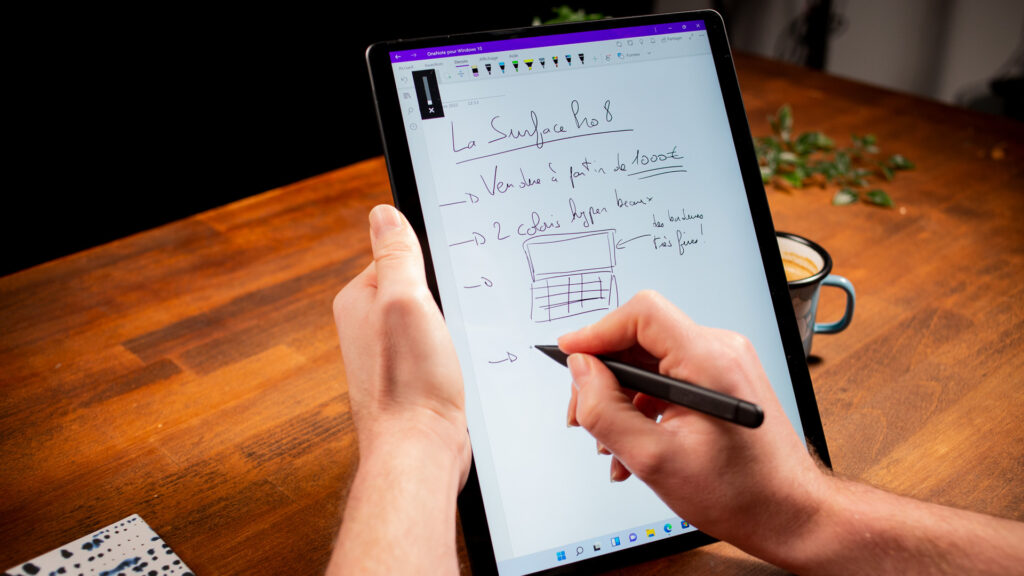 OneNote pour Windows 10
Accueil Insertion Dessin Affichage Aide Partager
La Surface Pro 8
Vendue à partir de 1000€
2 coloris hyper beaux
des bordures
très fines!